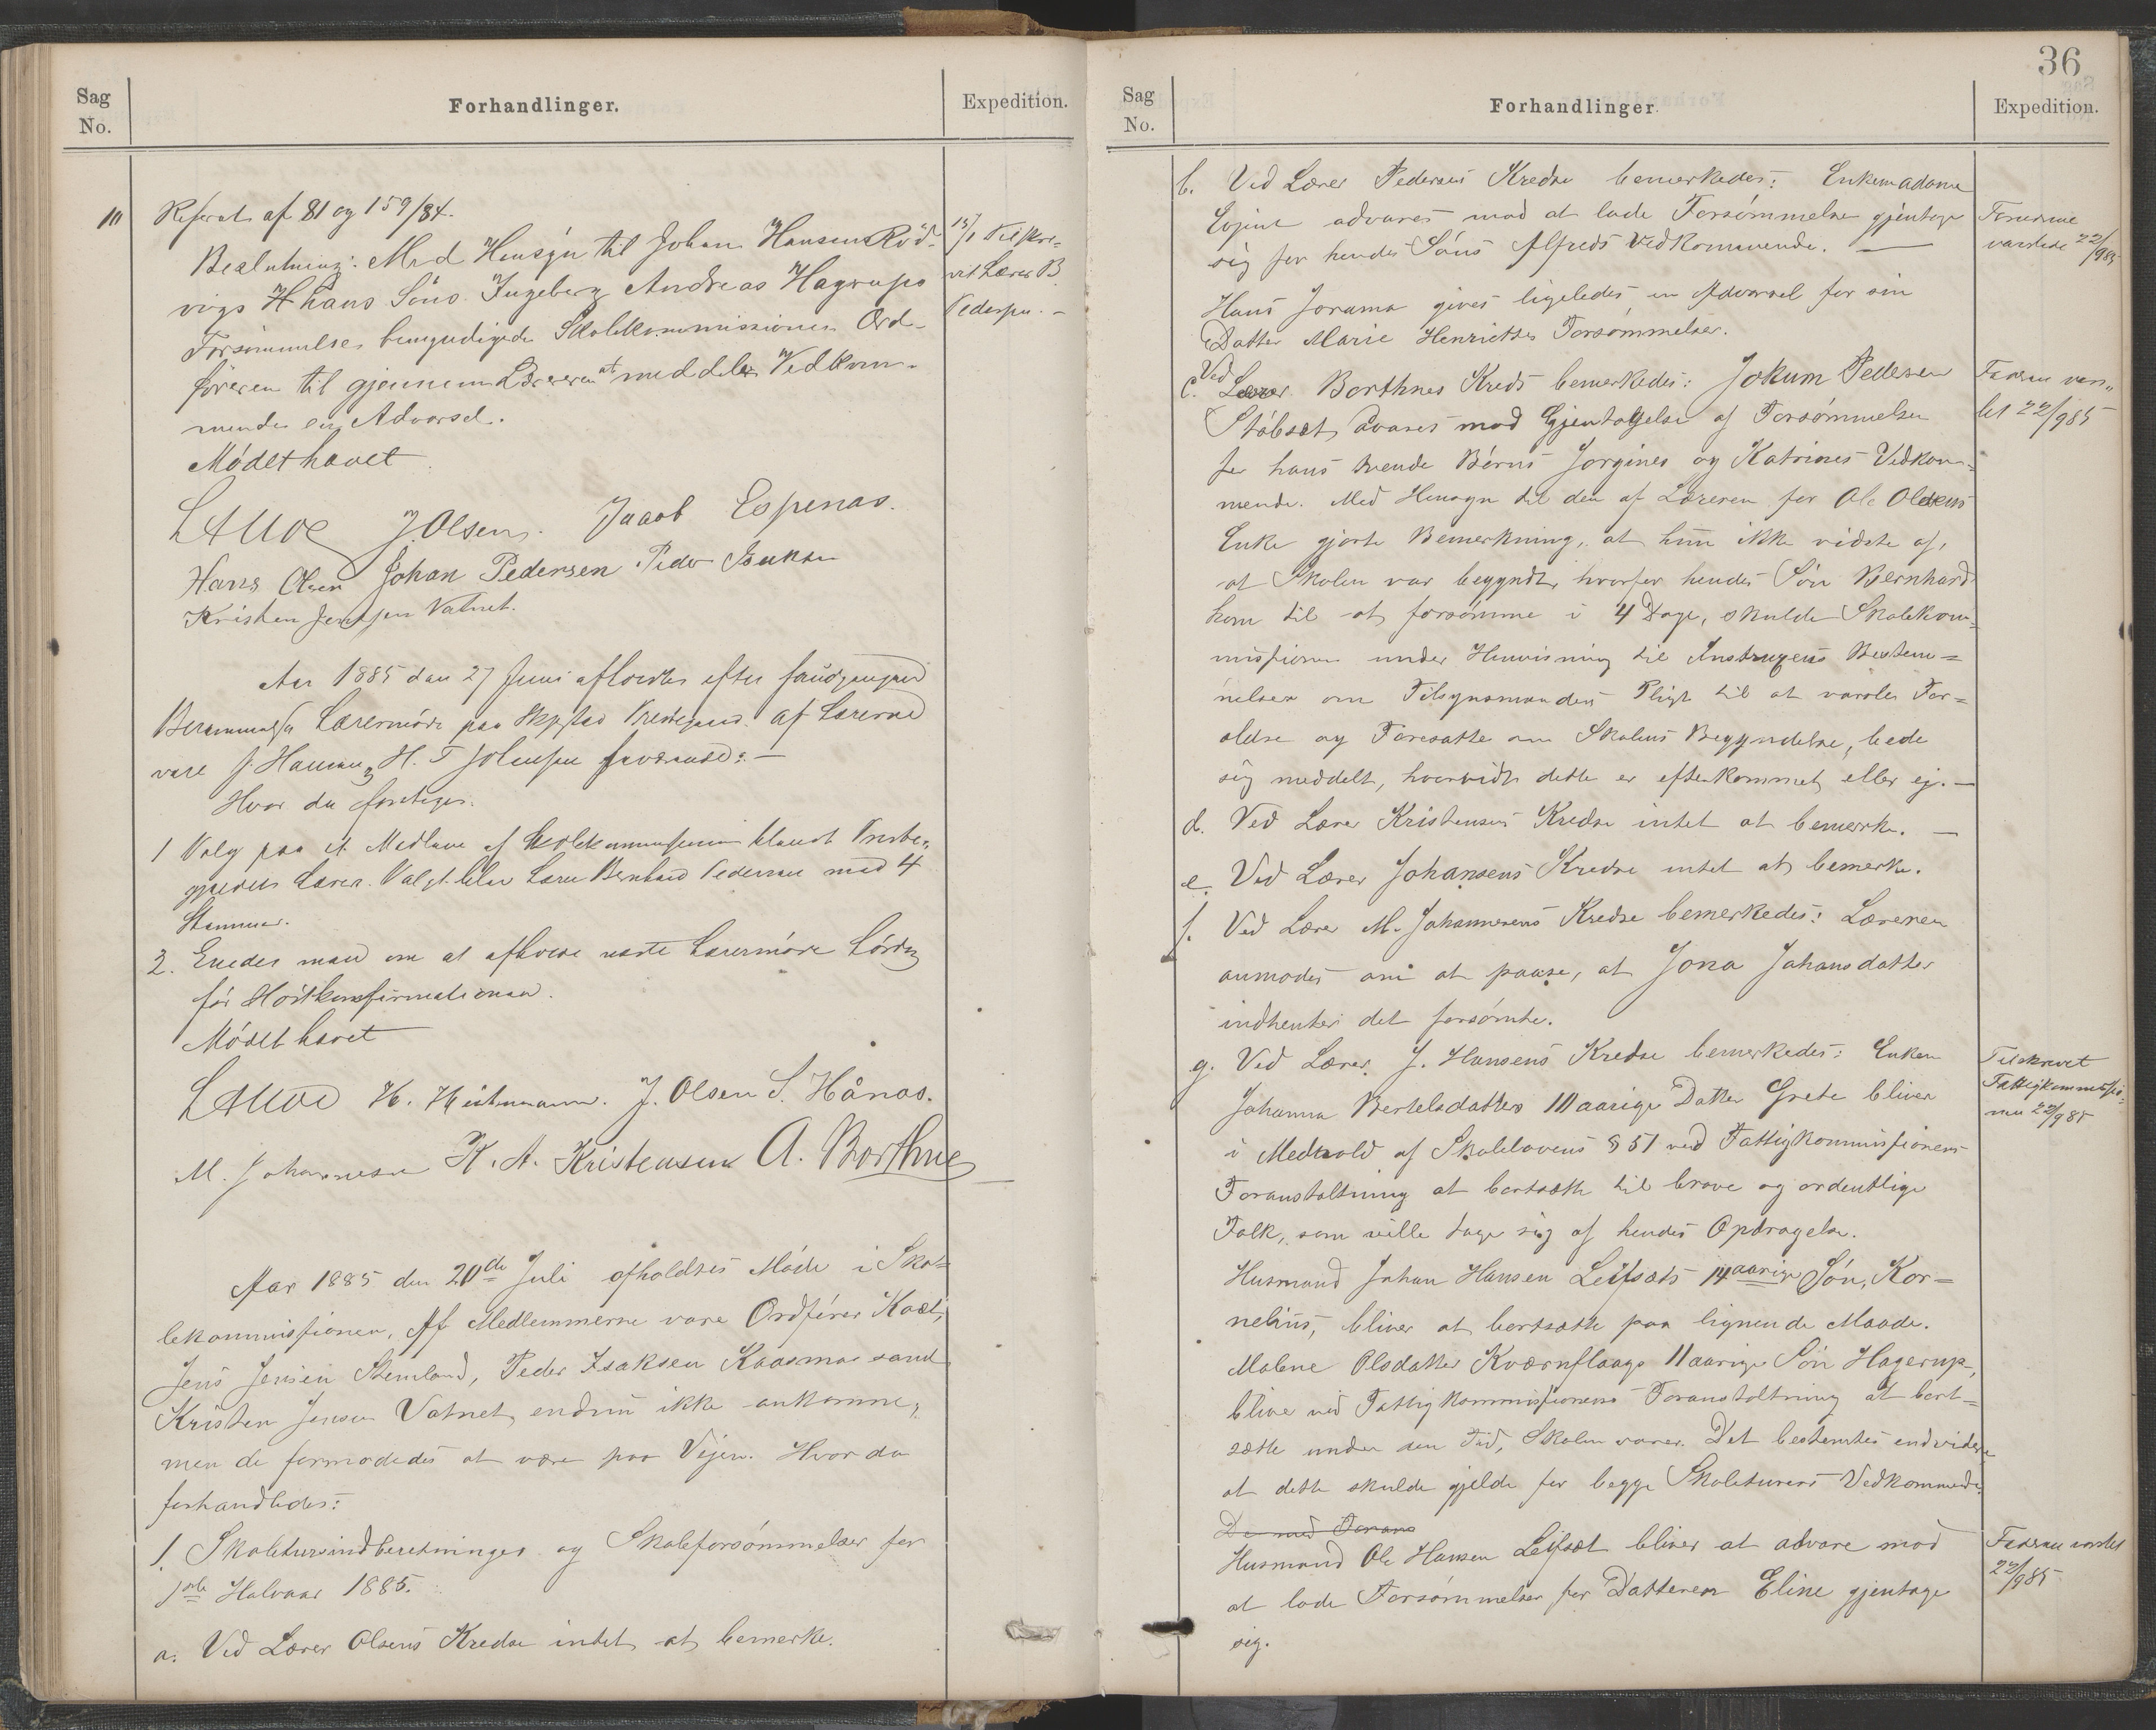 Sag
No.
Forhandlinger.
Expedition.
10
Referat af 81 og 159/84.
Beslutning: Med Hensyn til Johan Hansens Röd-
vigs Söns Ingeberg Andreas Hagrups
Forsömmelse bemyndigede Skolekommissionen Ord-
föreren til gjennem Læreren at meddele Vedkom-
mende en Advarsel.
Mödet hævet
J Olsen. Jacob Espenæs.
Hans Olsen Johan Pedersen Peder Isaksen
Kristen Jensen Vatnet.
15/1 Tilskre-
vet Lærer B.
Pedersen. -
Aar 1885 den 27 Juni afholdtes efter
Berammelse Lærermöde paa Præstegaard. Af Lærerne
vare J. Hansen, H. T Johnsen fraværende: -
Hvor da foretoges:
1 Valg paa et Medlem af Skolekommissionen blandt Præste-
gjeldets Lærere. Valgt blev Lærer Bernhard Pedersen med 4
Stemmer.
2. Enedes man om at afholde næste Lærermöde Lördag
för Höstkonfirmationen.
Mödet hævet
H. Heitmann. J. Olsen S. Hånæs.
M. Johannesen K. A. Kristensen A. Borthne
Aar 1885 den 20de Juli afholdtes Möde i Sko-
lekommissionen. Af Medlemmerne vare Ordförer
Jens Jensen Stemland, Peder Isaksen Kaasmosand
Kristen Jensen Vatnet endnu ikke ankomne,
men de formodedes at være paa Vejen. Hvor da
forhandledes:
1. Skoletursindberetninger og Skoleforsömmelser for
1ste Halvaar 1885.
a. Ved Lærer Olsens Kredse intet at bemerke.
36
Sag
No.
Forhandlinger.
Expedition.
b. Ved Lærer Pedersens Kredse bemerkedes: Enkemadame
advares mod at lade Forsömmelse gjentage
sig for hendes Söns Alfreds Vedkommende. —
varslede 22/985
Hans Jorama gives ligeledes en Advarsel for sin
Datter Marie Henriettes Forsömmelser.
c. Ved Lærer Borthnes Kreds bemerkedes: Jokum Pedersen
Stöbset advares mod Gjentagelse af Forsömmelser
Faderen vars-
let 22/985
for hans tvende Börns Jorgines og Katrines Vedkom-
mende. Med Hensyn til den af Læreren for Ole Olsens
Enke gjorte Bemerkning, at hun ikke vidste af,
at Skolen var begyndt, hvorfor hendes Sön Bernhard
kom til at forsömme i 4 Dage, skulde Skolekom-
missionen under Henvisning til Instruxens Bestem-
melser om Tilsynsmandens Pligt til at varsle For-
ældre og Foresatte om Skolens Begyndelse, bede
sig meddelt, hvorvidt dette er efterkommet eller ej. —
d. Ved Lærer Kristensens Kredse intet at bemerke. —
e. Ved Lærer Johansens Kredse intet at bemerke.
f. Ved Lærer M. Johannesens Kredse bemerkedes: Læreren
anmodes om at paase, at Jona Johansdatter
indhenter det forsömte.
g. Ved Lærer J. Hansens Kredse bemerkedes: Enken
Johanna Bertelsdatters 10 aarige Datter Grete bliver
i Medhold af Skolelovens § 51 ved Fattigkommissionens
Foranstaltning at bortsætte til brave og ordentlige
Folk, som ville tage sig af hendes Opdragelse.
Tilskrevet
Fattigkommissio-
nen 22/985
Husmand Johan Hansen Leifsets 14 aarige Sön, Kor-
nelius, bliver at bortsætte paa lignende Maade.
Malene Olsdatter Kværnflaags 11 aarige Sön Hagerup,
bliver ved Fattigkommissionens Foranstaltning at bort-
sætte under den Tid, Skolen varer. Det bestemtes endvidere
at dette skulde gjelde for begge Skoleturers Vedkommende.
Husmand Ole Hansen Leifset bliver at advare mod
at lade Forsömmelser for Datteren Eline gjentage
sig.
Faderen varslet
22/985